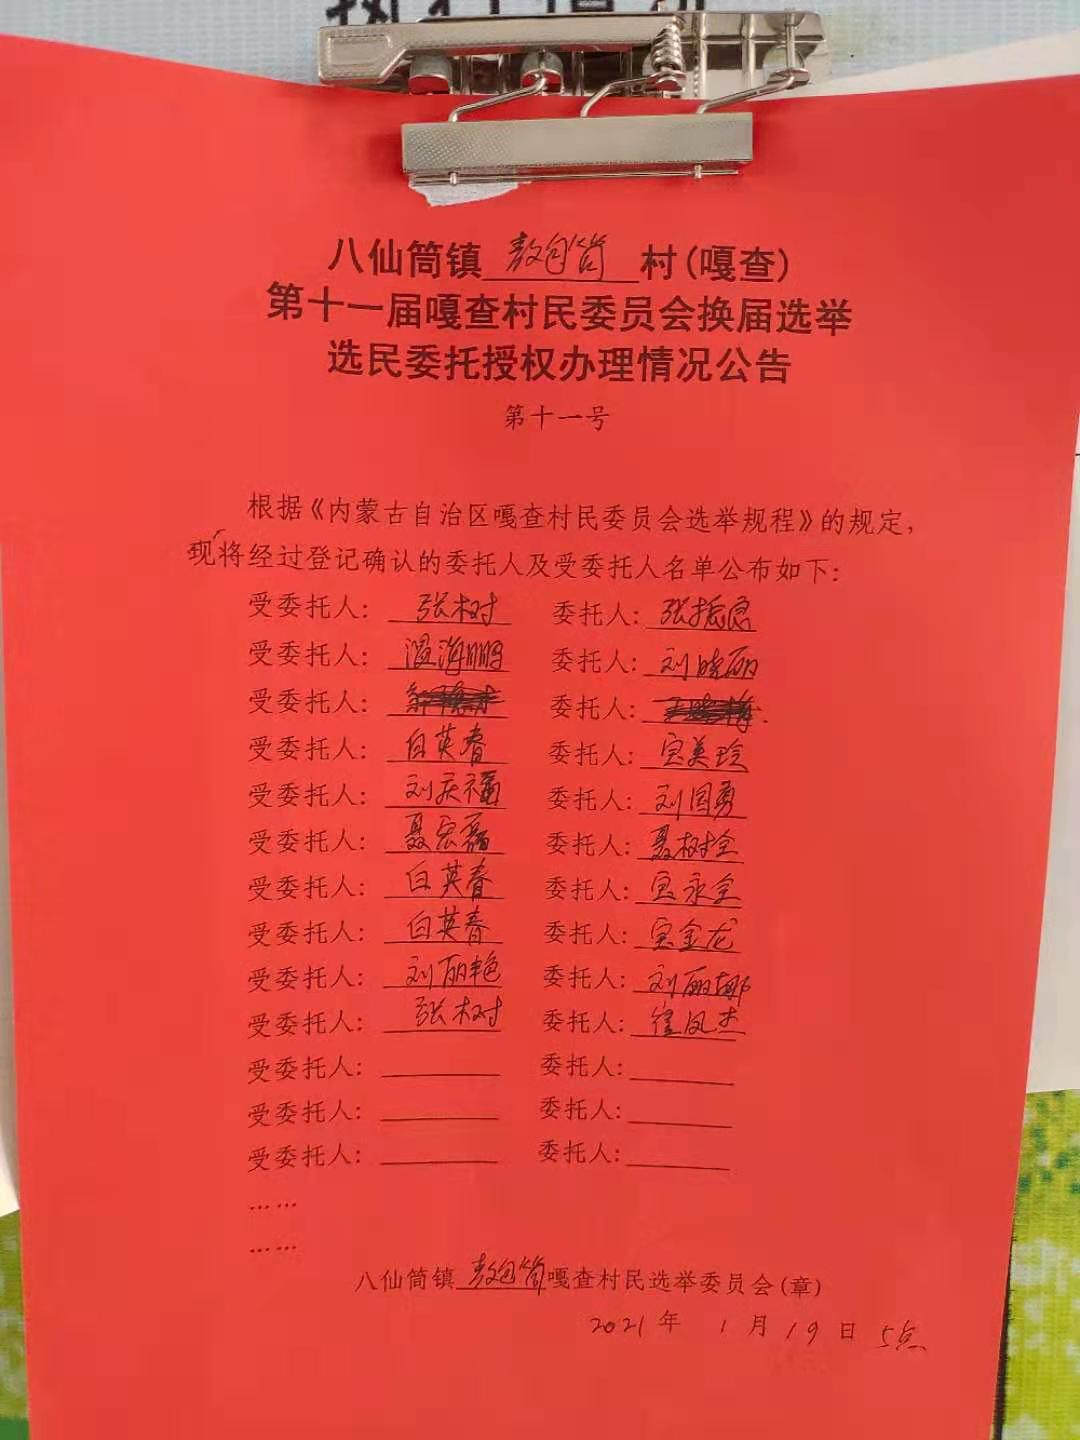 八仙筒镇敖包筒村(嘎查)
第十一届嘎查村民委员会换届选举
选民委托授权办理情况公告
第十一号
根据《内蒙古自治区嘎查村民委员会选举规程》的规定，
现将经过登记确认的委托人及受委托人名单公布如下：
受委托人：张树 委托人：张振良
受委托人：温海鹏 委托人：刘晓丽
受委托人： 委托人：
受委托人：白英春 委托人：宝美玲
受委托人：刘庆福 委托人：刘国勇
受委托人：聂宏磊 委托人：聂树全
受委托人：白英春 委托人：宝永全
受委托人：白英春 委托人：宝金龙
受委托人：刘丽艳 委托人：刘丽娜
受委托人：张树 委托人：崔凤杰
受委托人： 委托人：
受委托人： 委托人：
受委托人： 委托人：
……
……
八仙筒镇敖包筒嘎查村民选举委员会(章)
2021年 1月19日 5点